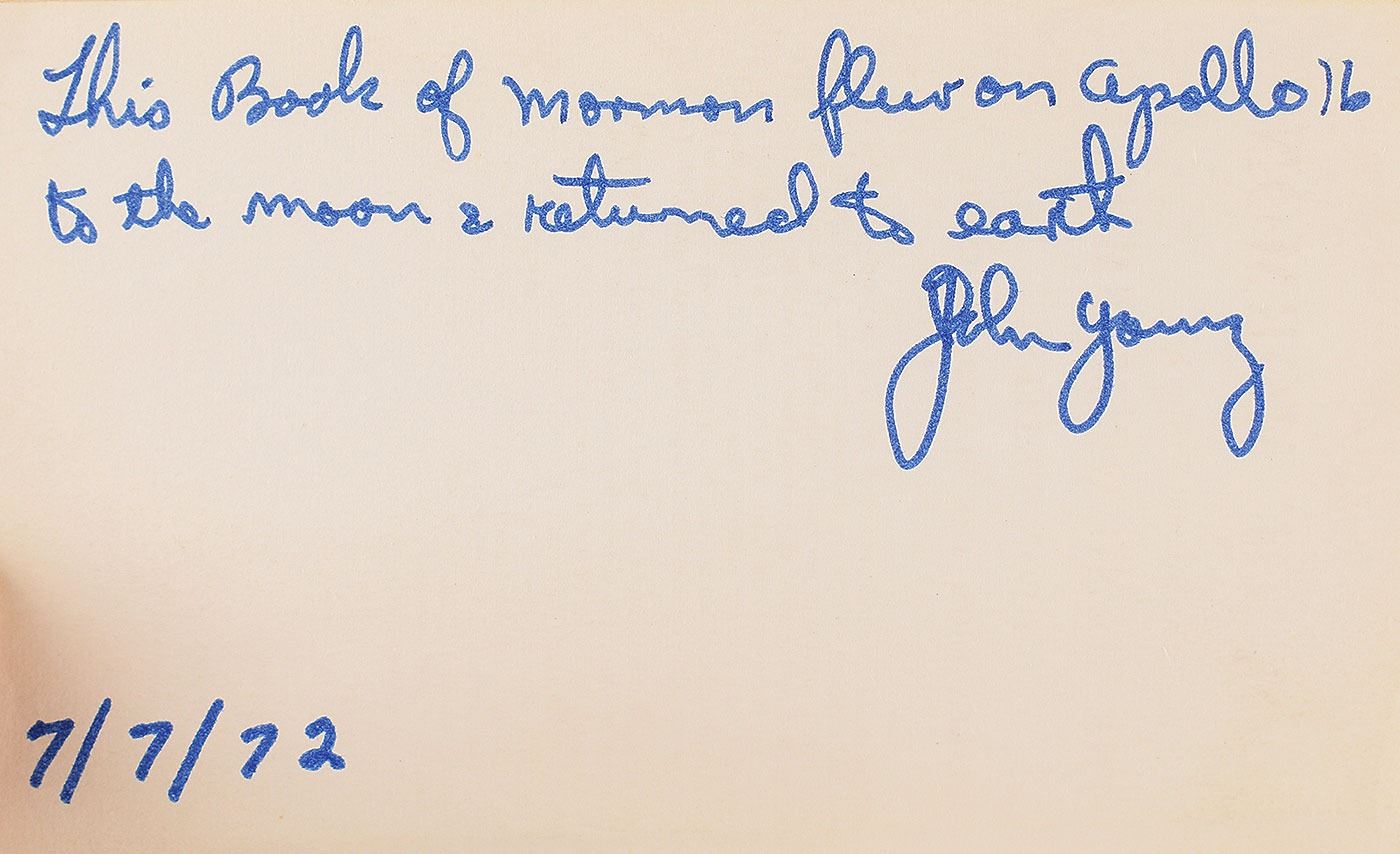 This Book of Mormon flew on Apollo 16
to the moon & returned to earth
John Young
7/7/72